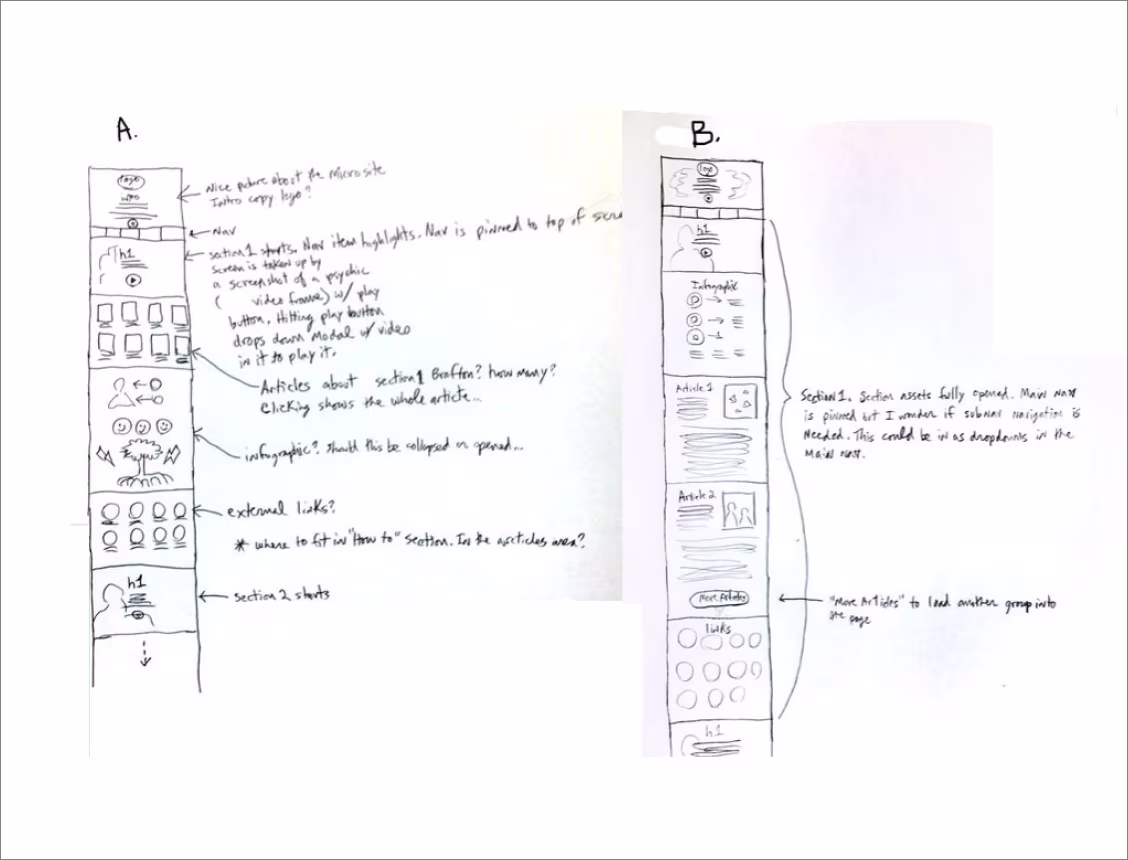 A.
logo
Nice picture about the microsite
Intro copy logo?
Nav
h1
section 1 starts. Nav item highlights. Nav is pinned to top of
screen is taken up by
a screenshot of a psychic
( video frame) w/ play
button. Hitting play button
drops down modal w/ video
in it to play it.
Articles about section 1 how many?
Clicking shows the whole article...
infographic? Should this be collapsed or opened...
external links?
* where to fit in "How to" section. In the articles area?
h1
section 2 starts
B.
logo
h1
Infographic
Article 1
Section 1. Section assets fully opened. Main nav
is pinned but I wonder if subnav navigation is
Needed. This could be in as dropdowns in the
Main nav.
Article 2
More Articles
"More Articles" to load another group into
the page
links
h1